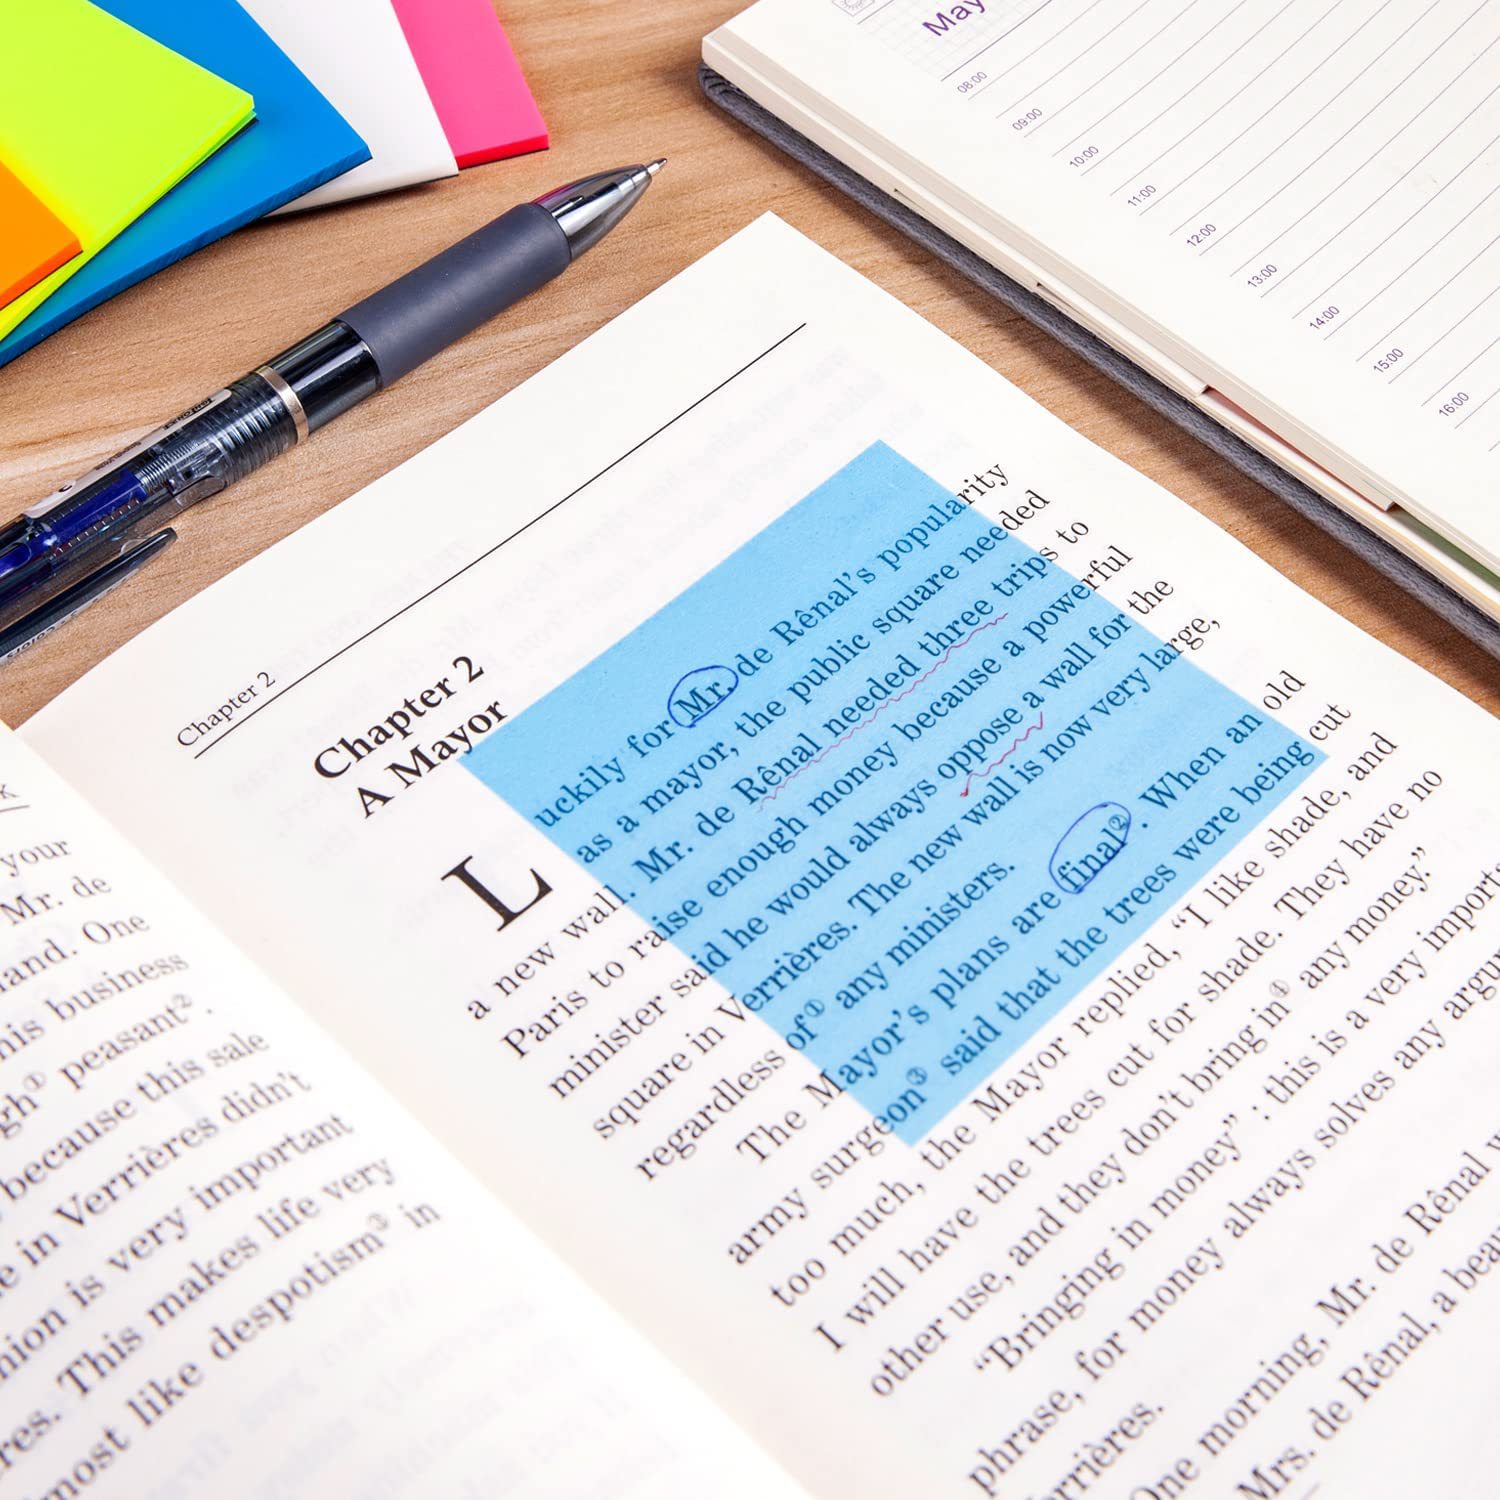 May
08:00
09:00
10:00
11:00
12:00
13:00
14:00
15:00
16:00
K
your
Mr. de
One
business
peasant②.
because this sale
in Verrières didn't
is very important
This makes life very
like despotism③ in
Chapter 2
Chapter 2
A Mayor
Luckily for Mr. de Rênal's popularity
as a mayor, the public square needed
a new wall. Mr. de Rênal needed three trips to
Paris to raise enough money because a powerful
minister said he would always oppose a wall for the
square in Verrières. The new wall is now very large,
regardless of① any ministers.
The Mayor's plans are final②. When an old
army surgeon③ said that the trees were being cut
too much, the Mayor replied, “I like shade, and
I will have the trees cut for shade. They have no
other use, and they don't bring in④ any money.”
“Bringing in money” : this is a very
phrase, for money always solves any
Verrières.
One morning, Mr. de Rênal
Mrs. de Rênal, a